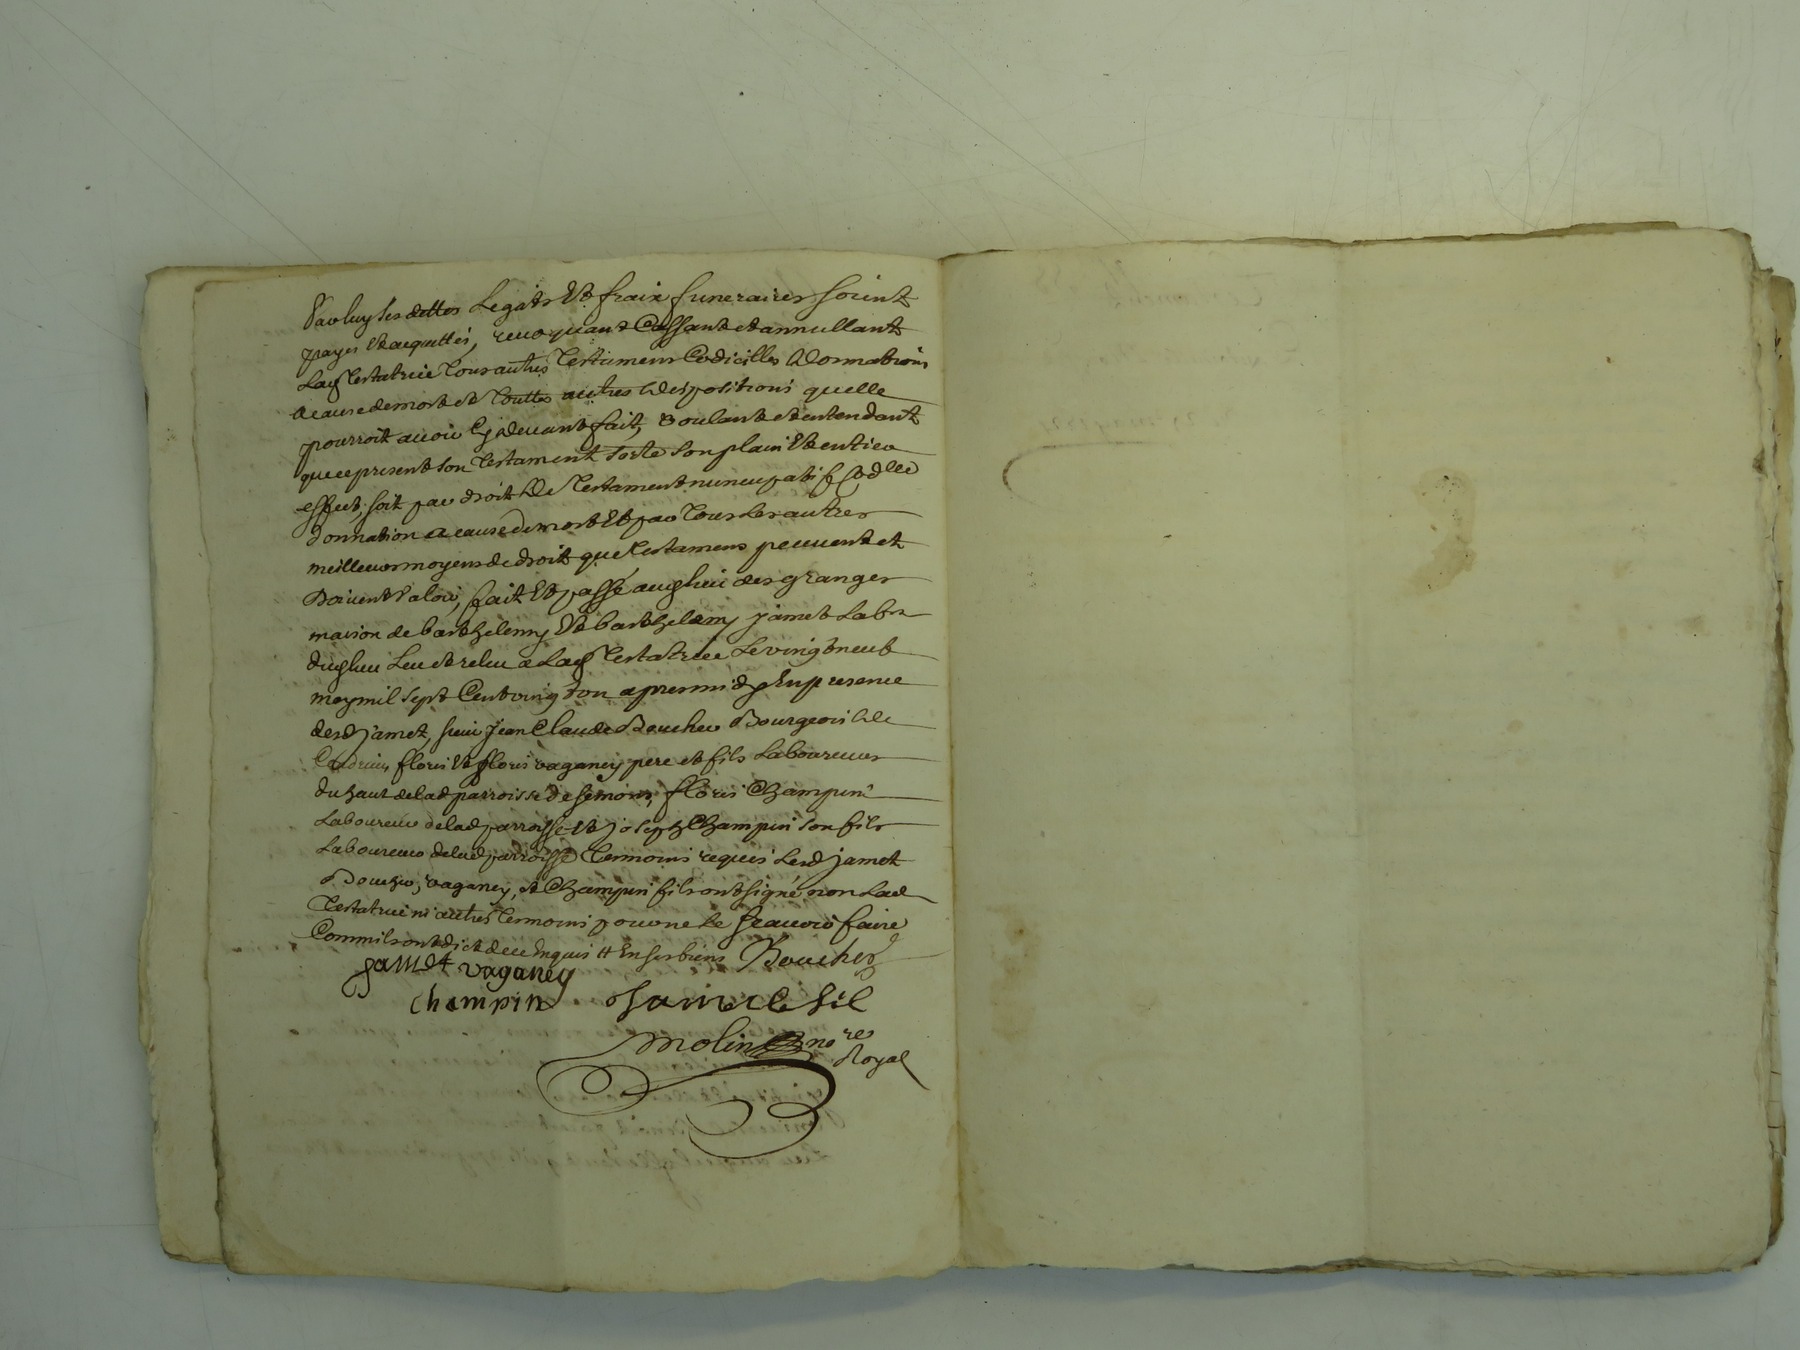 Par luy ses dettes Legats Et fraix funeraires soient
payes Et acquittés, revoquant Cassant et annullant
Lad Testatrice Tous autres Testamens Codicilles Donnations
a cause de mort et Touttes autres Dispositions quelle
pourroit avoir Cy devant fait, Voulant et entendant
que ce present son Testament sorte son plain Et entier
effect, soit par droit De Testament nuncupatif Codlle
donnation a cause de mort Et par Tous Les autres
meilleurs moyens de droit que Testamens peuvent et
Doivent Valoir, fait Et passé aud lieu des granges
maison de barthelemy Et barthelemy jamet Labrs
dud lieu Leu et releu a Lad Testatrice Le vingt neuf
may mil sept Cent vingt un apres midy En presence
desd jamet, sieur Jean Claude Boucher Bourgeois De
floris Et floris vaganey pere et fils Laboureurs
du haut de lad parroisse de semons, floris Champin
Laboureur de lad parroisse Et joseph Champin son fils
Laboureur de lad parroisse Temoins requis Lesd jamet
Boucher, vaganey, et Champin fils ont signé non Lad
Testatrice ni autres Temoins pour ne Le scavoir faire
Comm ils ont dict de ce Enquis Boucher
jamet vaganey
Champin jamet fil
Molin nore
Royal